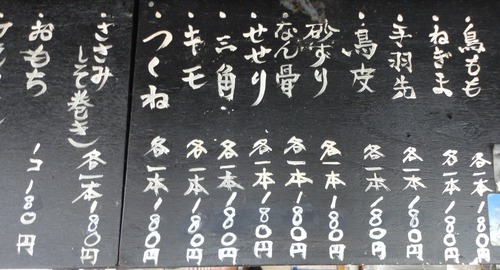 ・鳥もも 各一本 180円
・ねぎま 各一本 180円
・手羽先 各一本 180円
・鳥皮 各一本 180円
・砂ずり 各一本 180円
・なん骨 各一本 180円
・せせり 各一本 180円
・三角 各一本 180円
・キモ 各一本 180円
・つくね 各一本 180円
・ささみ(しそ巻き) 各一本 180円
・おもち 一コ 180円